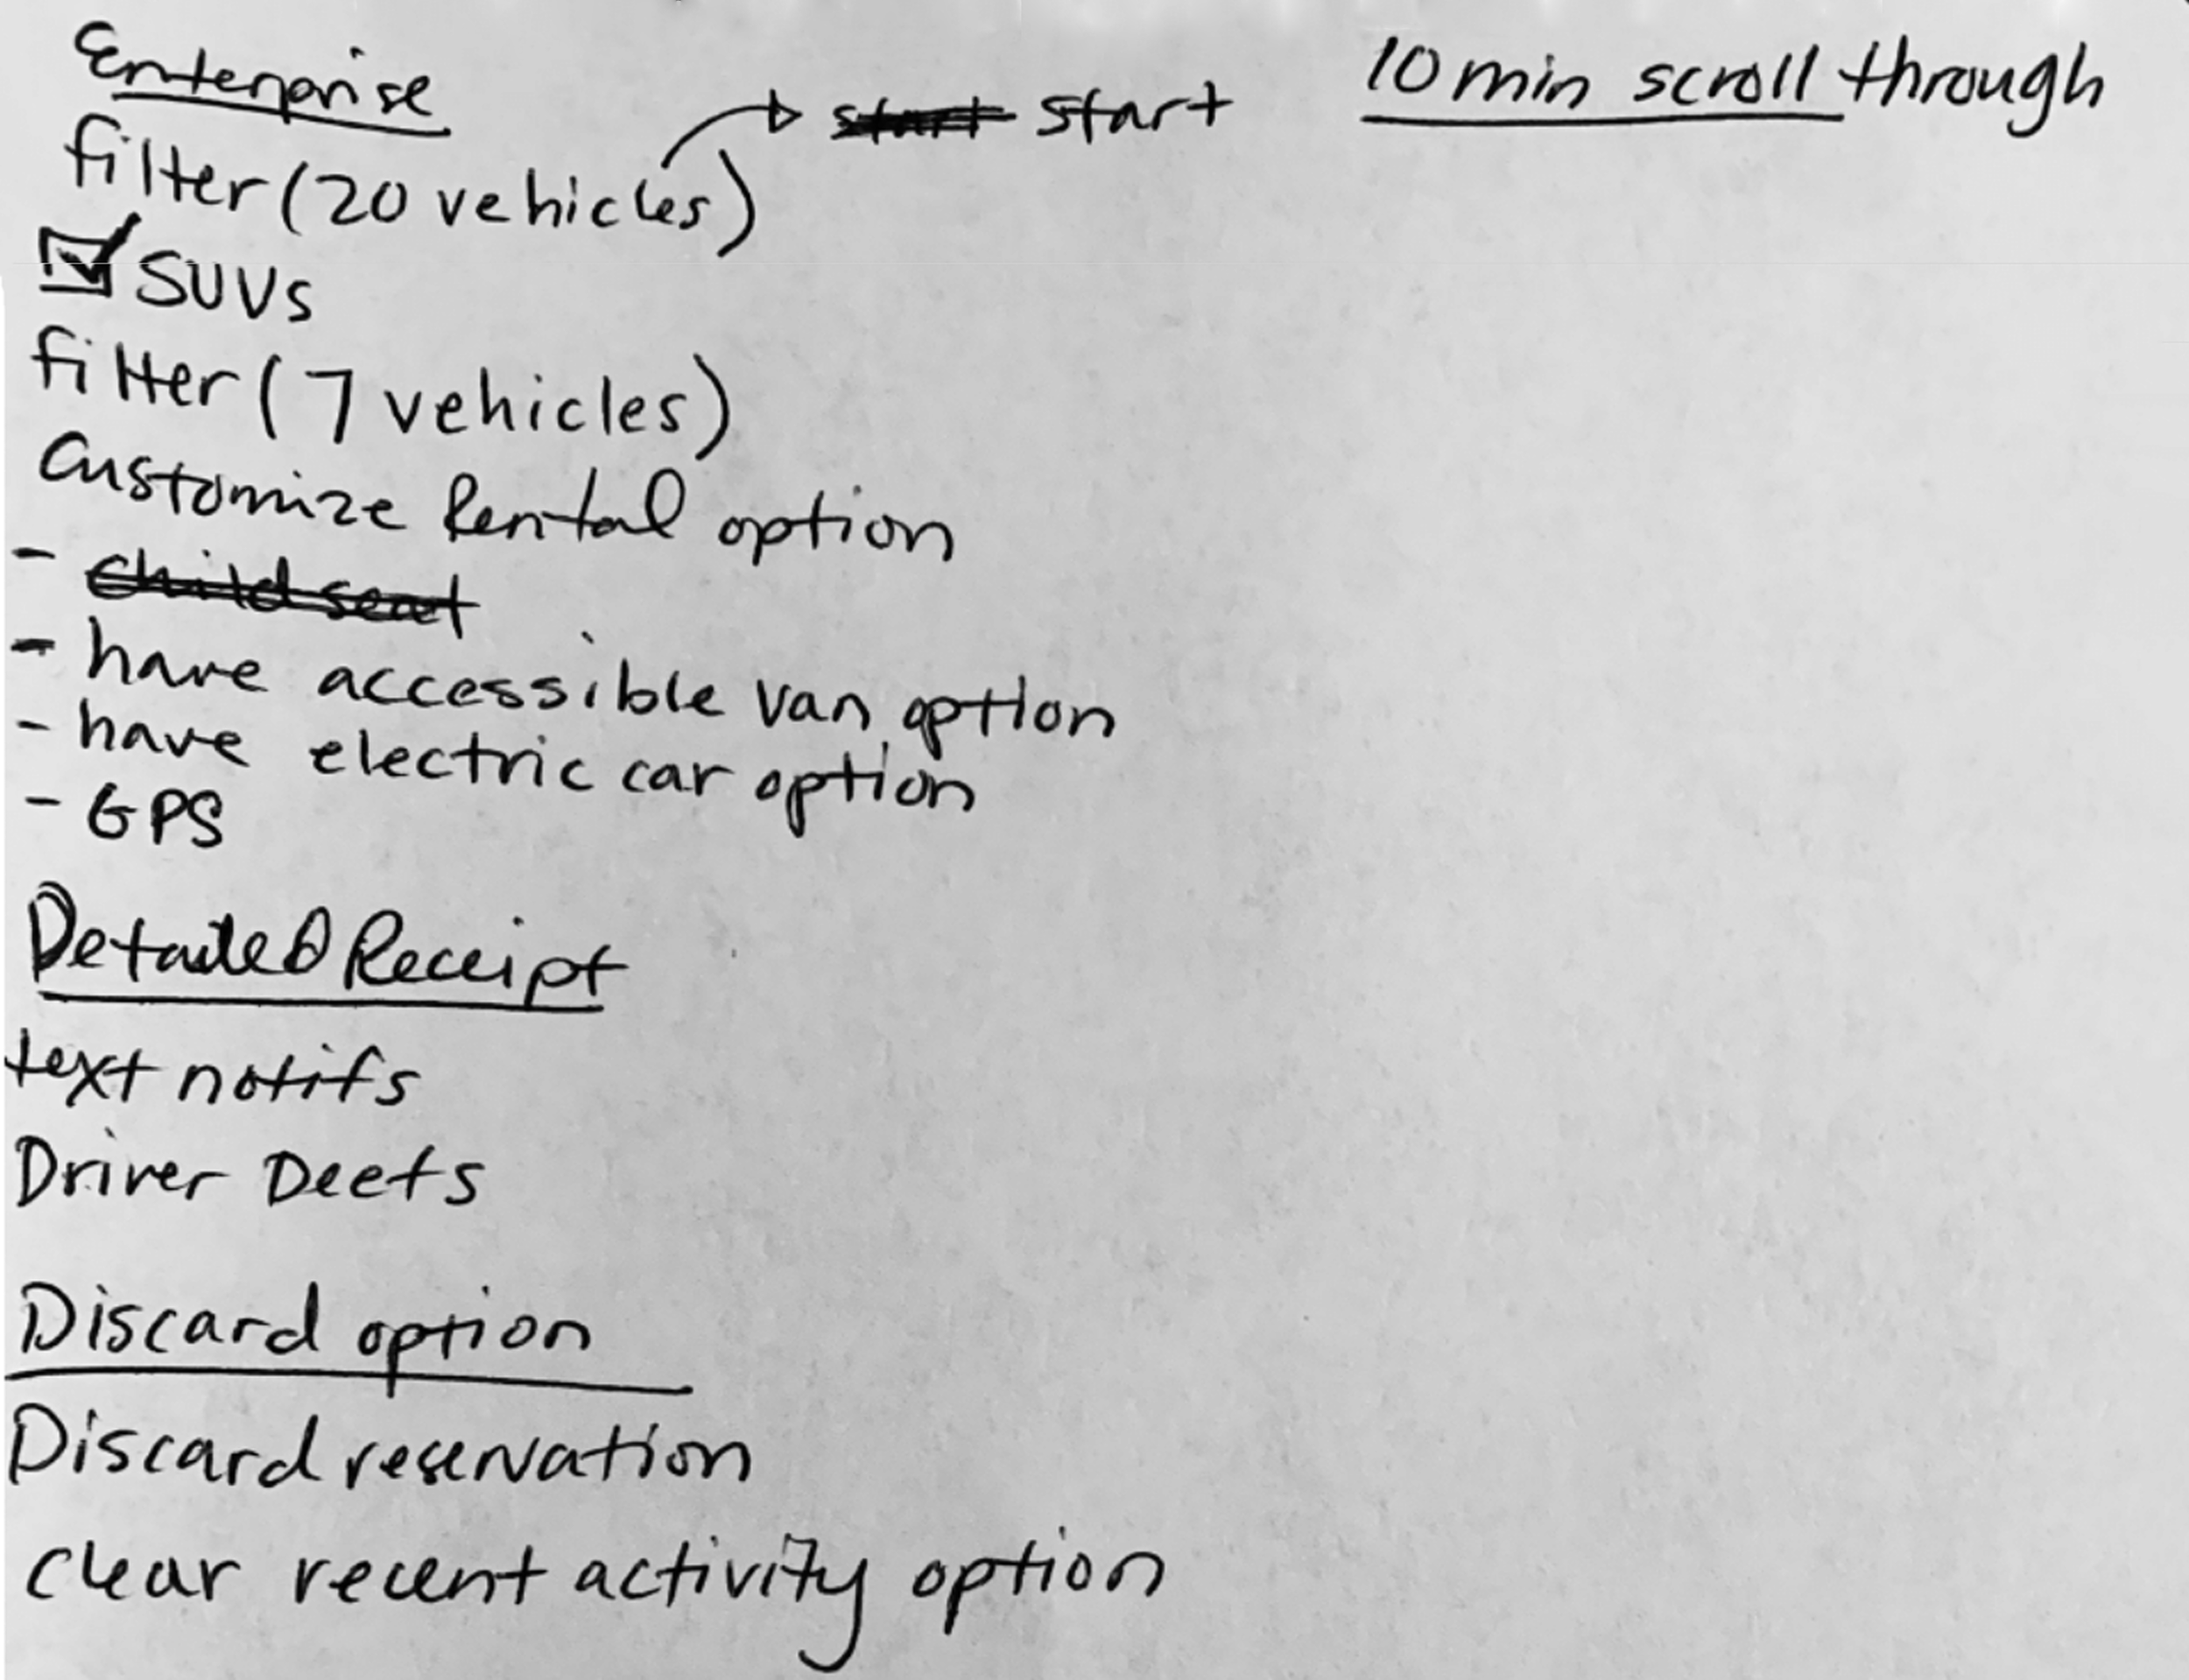 Enterprise
10 min scroll through
filter (20 vehicles) → ~~start~~ start
☑ SUVs
filter (7 vehicles)
Customize Rental option
- ~~Child seat~~
- have accessible van option
- have electric car option
- GPS
Detailed Receipt
text notifs
Driver Deets
Discard option
Discard reservation
clear recent activity option